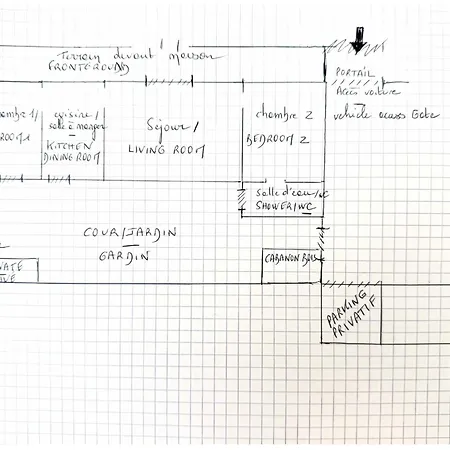 Terrain devant maison
FRONTGROUND
PORTAIL
Accès voiture
vehicle access Gate
chambre 1/
ROOM 1
cuisine/
salle à manger
KITCHEN
DINING ROOM
Séjour/
LIVING ROOM
chambre 2
BEDROOM 2
salle d'eau/WC
SHOWER/WC
COUR/JARDIN
GARDIN
CABANON BOIS
PARKING
PRIVATIF